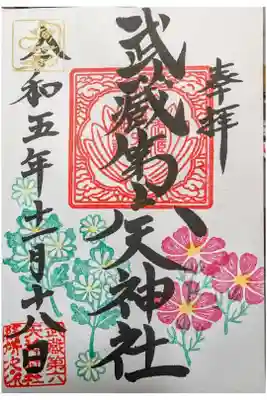 奉拝
武蔵第六天神社
令和五年十一月十八日
武蔵第六
天神社